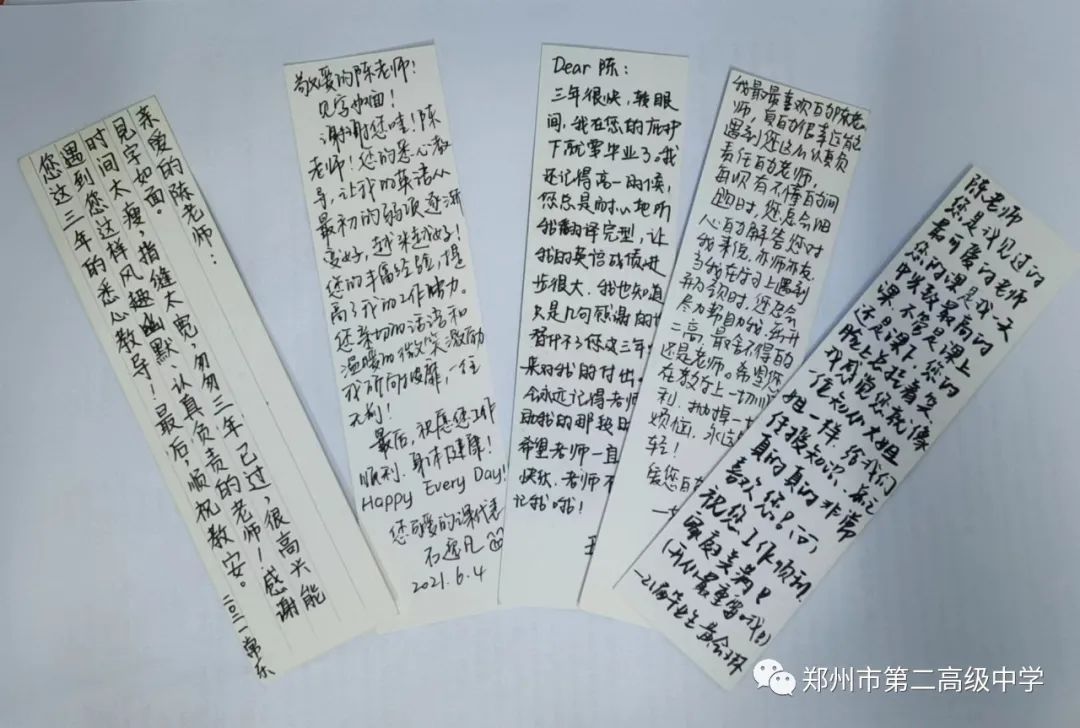 亲爱的陈老师：
见字如面。
时间太瘦，指缝太宽，匆匆三年已过，很高兴能
遇到您这样风趣幽默、认真负责的老师！感谢
您这三年的悉心教导！最后，顺祝教安。
二〇二一 常乐
敬爱的陈老师！
见字如面！
谢谢您哇！陈
老师！您的悉心教
导，让我的英语从
最初的弱项逐渐
变好，越来越好！
您的丰富经验，提
高了我的工作能力。
您亲切的话语和
温暖的微笑激励
我所向披靡，一往
无前！
最后，祝愿您工作
顺利、身体健康！
Happy Every Day!
您可爱的课代表
2021.6.4
Dear 陈：
三年很快，转眼
间，我在您的庇护
下就要毕业了。我
还记得高一的时候，
您总是耐心地听
我翻译完型，让
我的英语成绩进
步很大。我也知道
只是几句感谢的
替代不了您这三年
来对我的付出。
会永远记得老师
助我的那段时
希望老师一直
快乐，老师不
记我哦！
我最最喜欢的陈老
师，真的很幸运能
遇到您这么认真负
责任的老师。
每次有不懂的问
题时，您总会细
心的解答。您对
我来说，亦师亦友，
当我在学习上遇到
困难时，您总会
尽力帮助我，离开
二高，最舍不得的
还是老师。希望您
在教学上一切顺
利，抛掉一切
烦恼，永远
轻！
爱您的
陈老师
您是我见过的
最可爱的老师
您的课是我一天
中兴致最高的
课，不管是课上
还是课下，您的
脸上总挂着笑
我感觉您就像
一位知心大姐
姐一样，给我们
传授知识，总之
真的真的非常
喜欢您！
祝您工作顺利，
家庭美满！
（开心最重要哦！）
郑州市第二高级中学